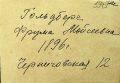 Гольдберг
Фрума Мовшевна
1896 г.
Черниговская 12